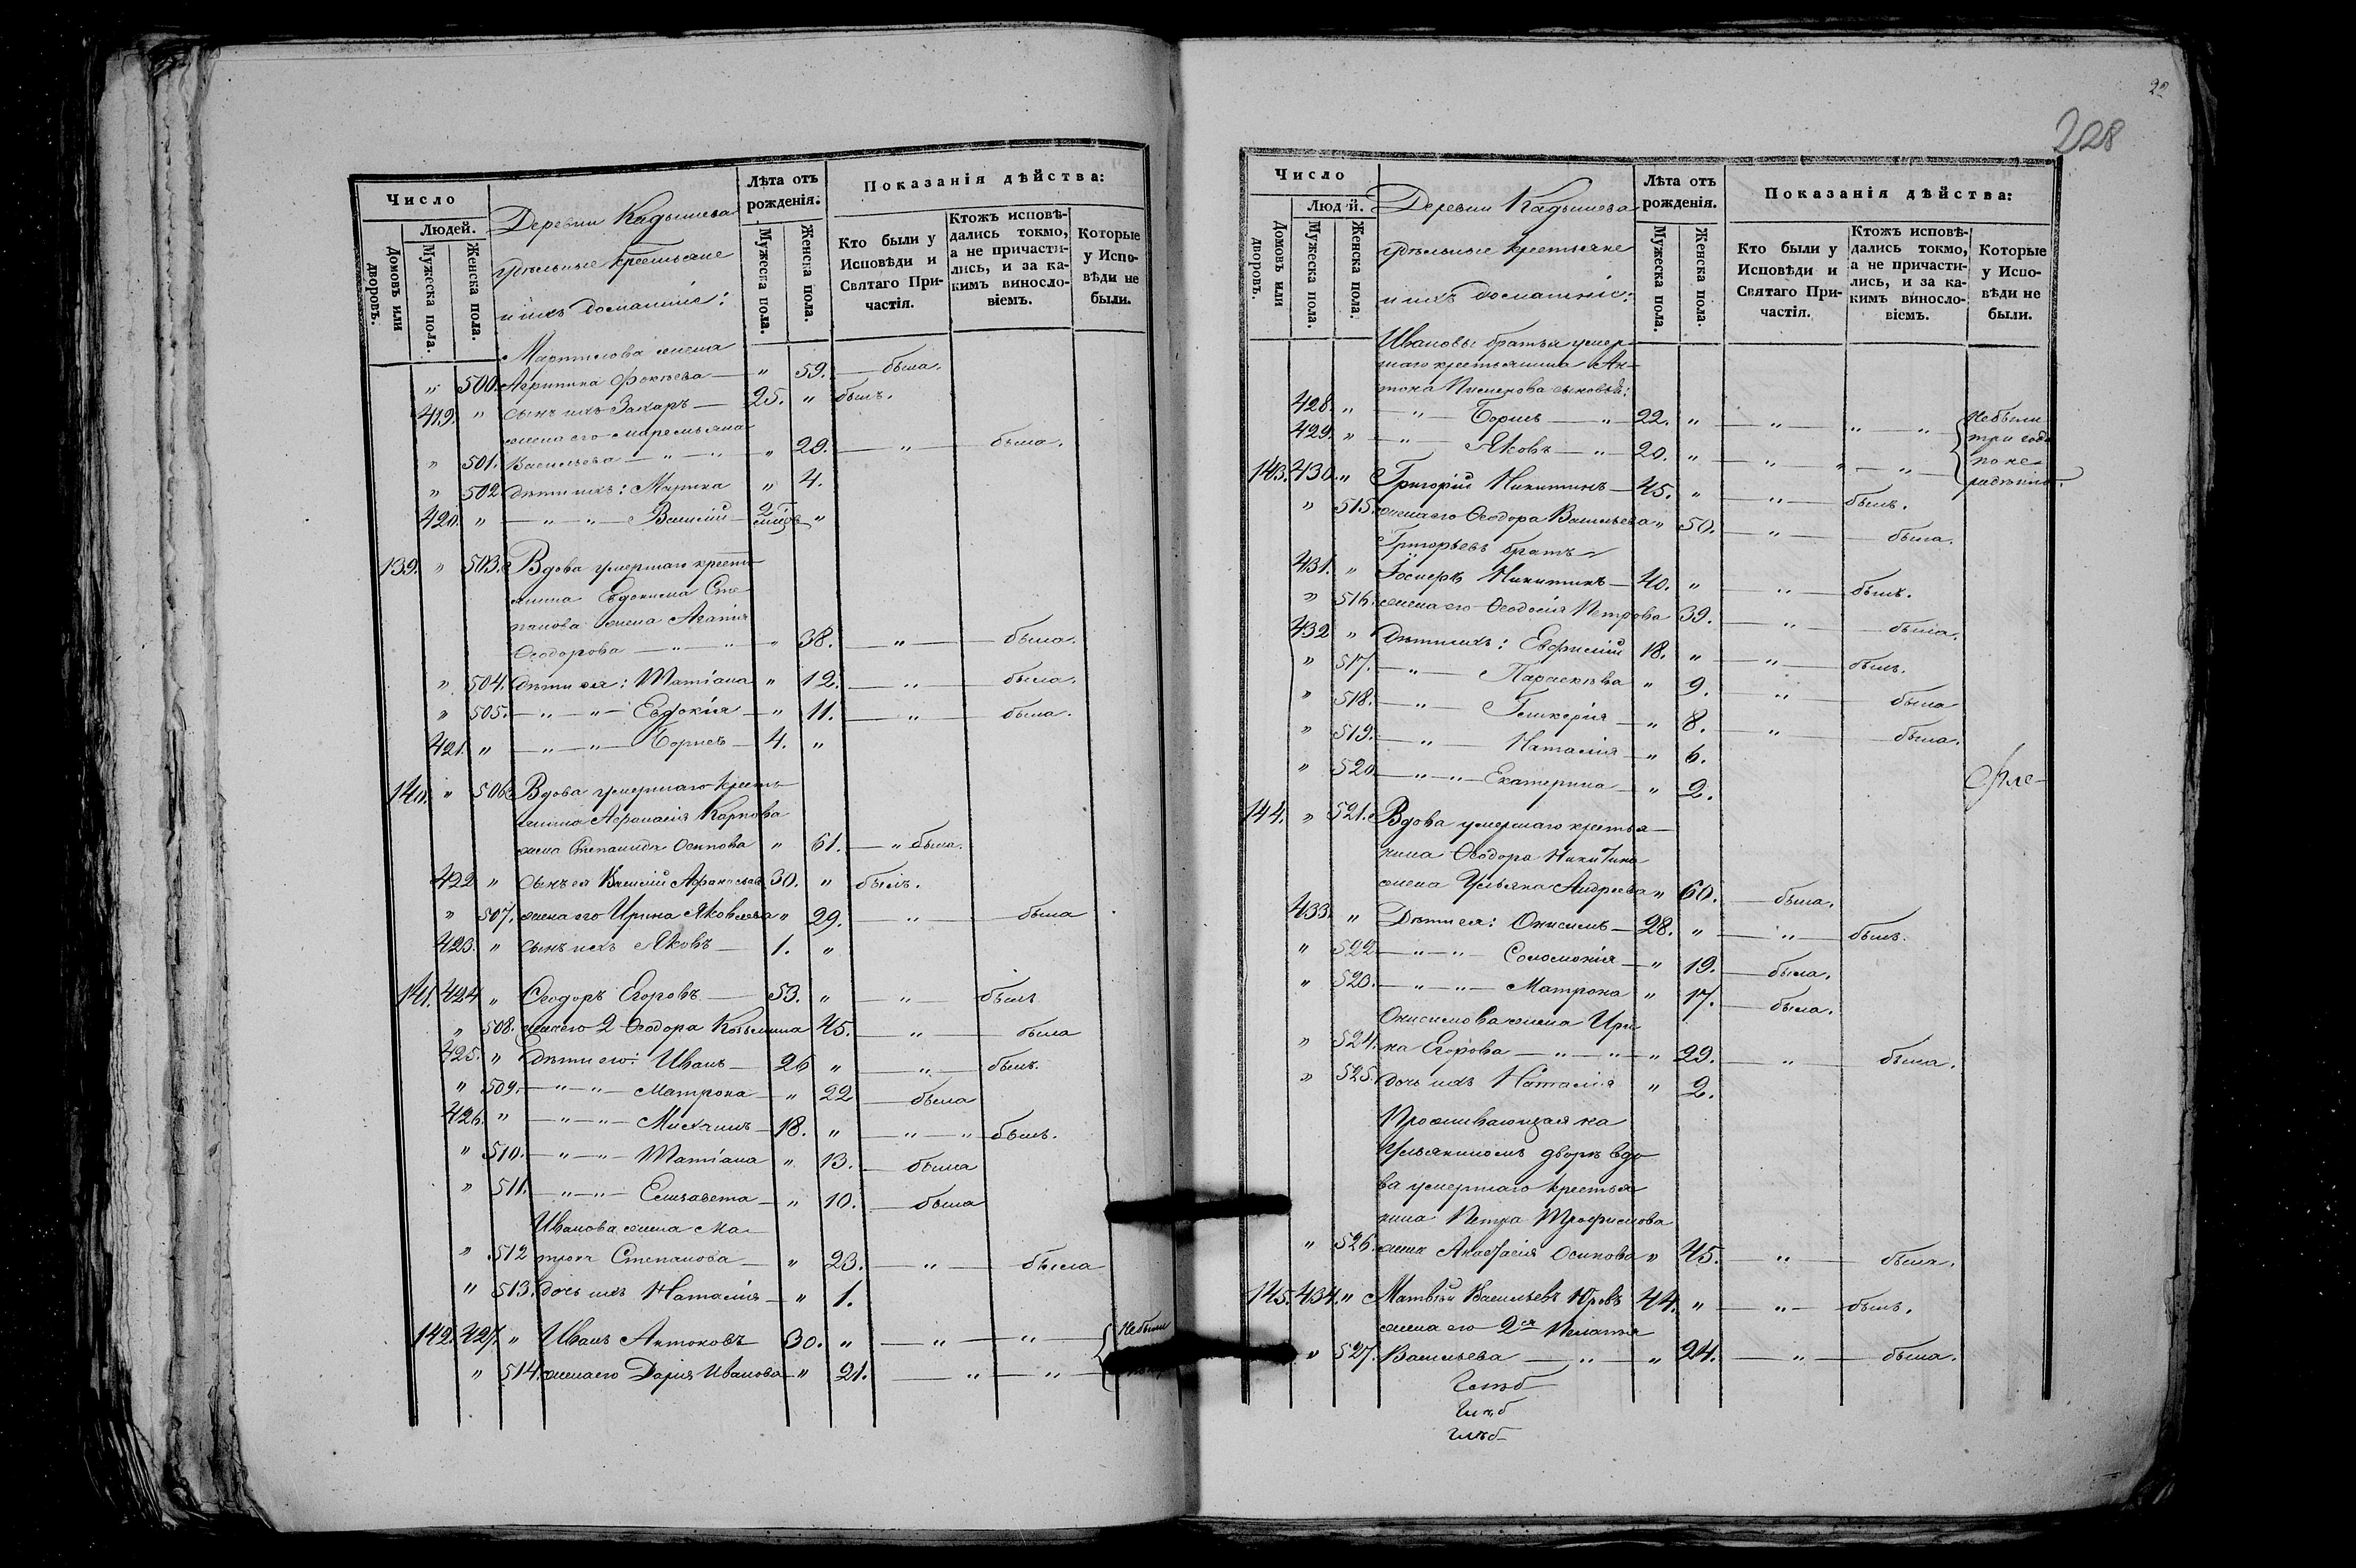 Число
Людей.
Домовъ или дворовъ.
Мужеска пола.
Женска пола.
Деревни Кадышева
удѣльные крестьяне
и ихъ домашніе:
Лѣта отъ рожденія.
Мужеска пола.
Женска пола.
Показанія дѣйства:
Кто были у Исповѣди и Святаго Причастія.
Ктожъ исповѣдались токмо, а не причастились, и за какимъ винословіемъ.
Которые у Исповѣди не были.
жена
" 500. Агрипина Фокѣева — " 59. — была.
419. " сынъ ихъ Захаръ — 25. " былъ.
жена его Маремьяна
" 501. Васильева — " — " — " 29. — " — была.
" 502. дѣти ихъ: Марина " 4.
420. " — " — " — Василій 2 "
139. " 503. Вдова умершаго кресть-
янина Евдокима Сте-
панова жена Агапія
Ѳеодорова — " — " — " 38. — " — была.
" 504. дѣти ея: Татіана " 12. — " — была.
" 505. — " — " — Евдокія — " 11. — " — была.
421. " — " — " — Борисъ — 4. "
140. " 506. Вдова умершаго кресть-
янина Афанасія Карпова
жена Степанида Осипова " 61. — " была.
422 " сынъ ея Василій Афанасьевъ 30. " былъ.
" 507. жена его Ирина Яковлева " 29. — " — была
423. " сынъ ихъ Яковъ — 1. "
141. 424 " Ѳеодоръ Егоровъ — 53. " — " — былъ
" 508. жена его 2 Ѳеодора Козьмина 45. — " — была
425. " дѣти его: Иванъ — 26 " — " — былъ.
" 509. — " — " — Матрона — " 22 — была
426. " — " — " — Михаилъ — 18. " — " — " былъ.
" 510. — " — " — Татіана " 13. — была
" 511. — " — " — Елизавета — " 10. — была
Иванова жена Ма-
" 512 трона Степанова — " 23. — " — была
" 513. дочь ихъ Наталія — " 1.
142. 427. " Иванъ Антоновъ 30. " — " — " — небыли
" 514. жена его Дарія Иванова — " 21. — " — " —
22
228
Число
Людей.
Домовъ или дворовъ.
Мужеска пола.
Женска пола.
Деревни Кадышева
удѣльные крестьяне
и ихъ домашніе:
Лѣта отъ рожденія.
Мужеска пола.
Женска пола.
Показанія дѣйства:
Кто были у Исповѣди и Святаго Причастія.
Ктожъ исповѣдались токмо, а не причастились, и за какимъ винословіемъ.
Которые у Исповѣди не были.
Ивановы братья умер-
шаго крестьянина Ан-
тона Пименова сыновья:
428. " — " — Борисъ — " 22. " — " — " — " небыли
429. " — " — Яковъ — " 20. " — " — " — " три года
по не-
радѣнію.
143. 430. " Григорій Никитинъ — 45. " — " — былъ.
" 515. жена его Ѳеодора Васильева " 50. — " — была.
Григорьевъ братъ
431. " Іосифъ Никитинъ — 40. " — " — былъ.
" 516. жена его Ѳеодосія Петрова 39. — " — была.
432 " дѣти ихъ: Евфимій 18. " — " — былъ.
" 517. — " — Параскѣва " 9. — " — была
" 518. — " — Гликерія — " 8. — " — была.
" 519. — " — Наталія — " 6.
" 520 — " — " — Екатерина — " 2.
144. " 521. Вдова умершаго крестья-
нина Ѳеодора Никитина
жена Ульяна Андреева " 60. — была.
433. " Дѣти ея: Онисимъ — 28. " — " — былъ.
" 522 — " — " — Соломонія — " 19. — была.
" 520. — " — " — Матрона " 17. — была.
Онисимова жена Ири-
" 524. на Егорова — " — " — " 29. — " — была.
" 525. дочь ихъ Наталія " 2.
Проживающая на
Ульяниномъ дворѣ вдо-
ва умершаго крестья-
нина Петра Трофимова
" 526. жена Анастасія Осипова " 45. — " — была.
145. 434. " Матвѣй Васильевъ Юровъ 44. " — " — былъ.
жена его 2ая Пелагія
" 527. Васильева — " — " 24. — " — была.